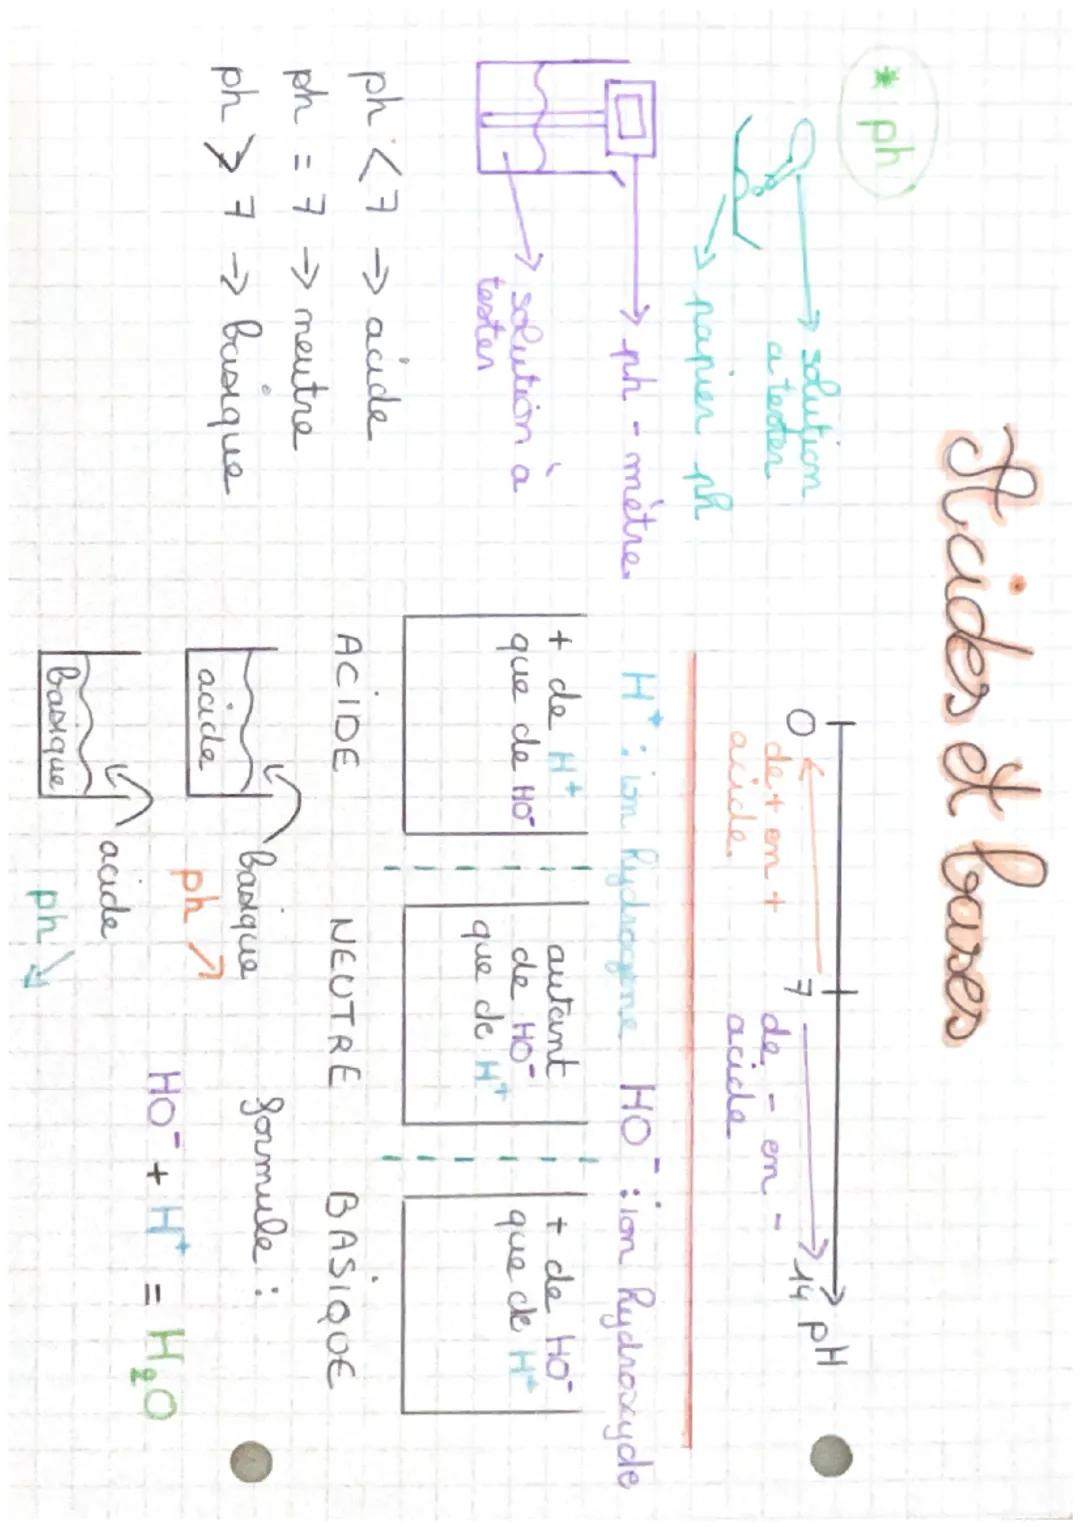 Acides et bases
* ph
solution
a tester
papier ph
ph-mètre
solution à
tester
ph < 7 → acide
ph = 7 → neutre
ph > 7 → basique
0 7 14 pH
de + en +
acide
de - en -
acide
H⁺ : ion hydrogene HO⁻ : ion hydroxyde
+ de H⁺
que de HO⁻
autant
de HO⁻
que de H⁺
+ de HO⁻
que de H⁺
ACIDE NEUTRE BASIQUE
basique
acide
ph ↗
acide
basique
ph ↘
formule :
HO⁻ + H⁺ = H₂O